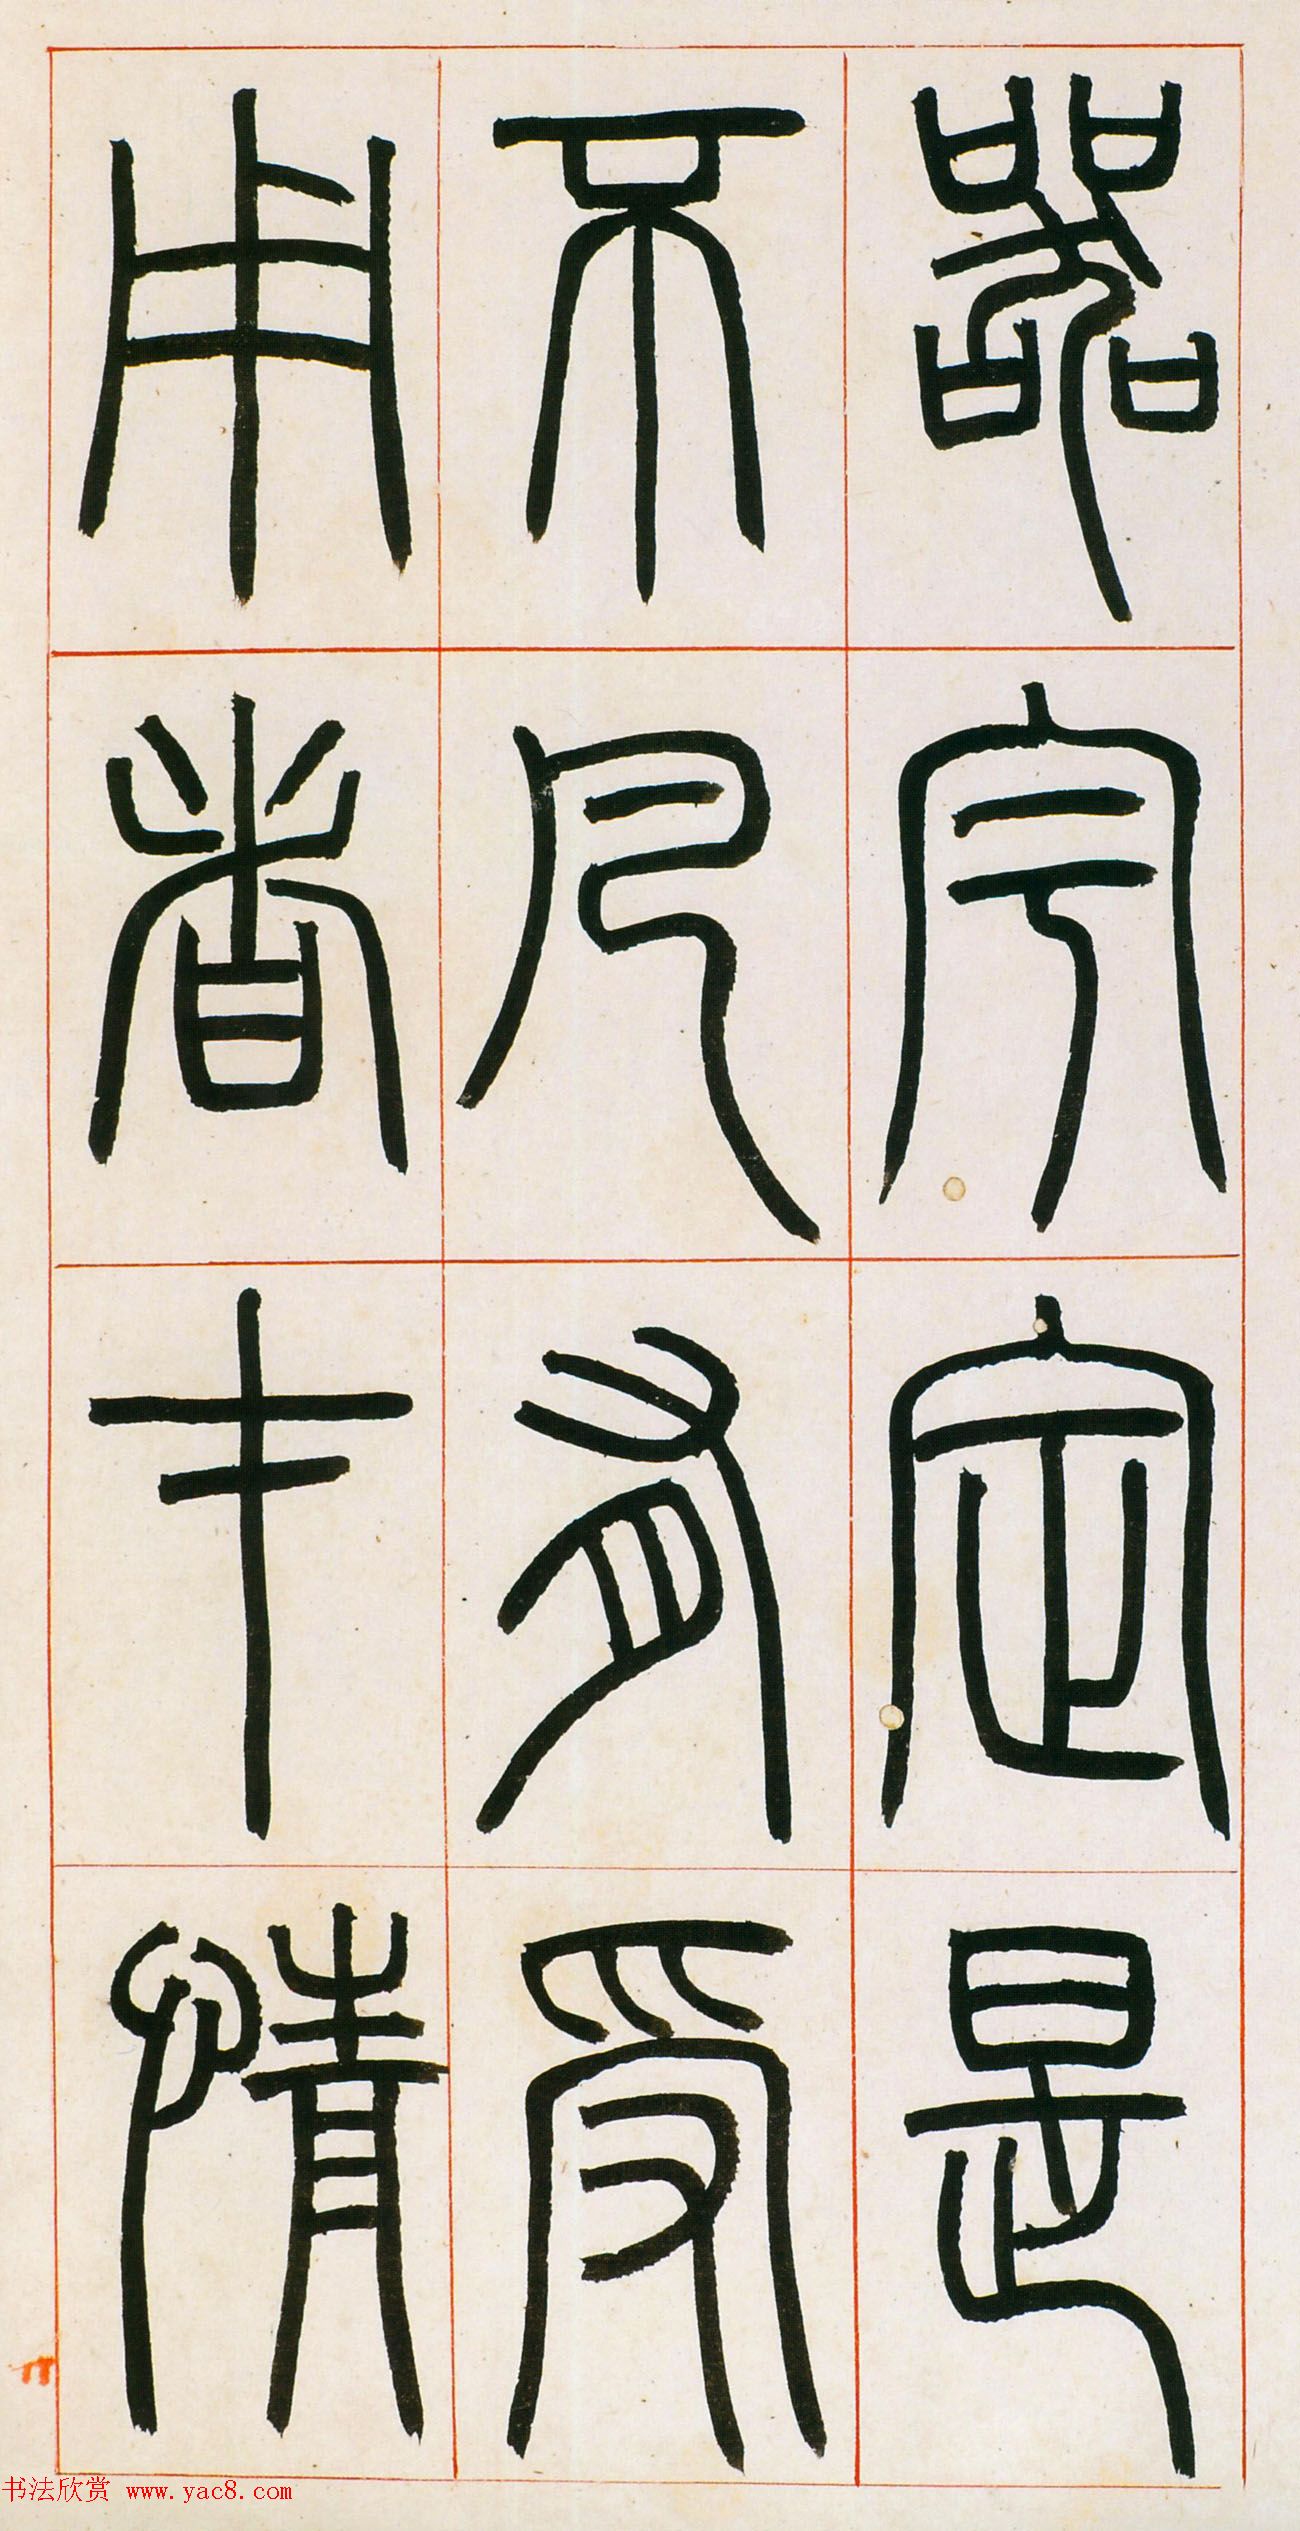 器宇定是
不凡有受
用者才情
书法欣赏 www.yac8.com